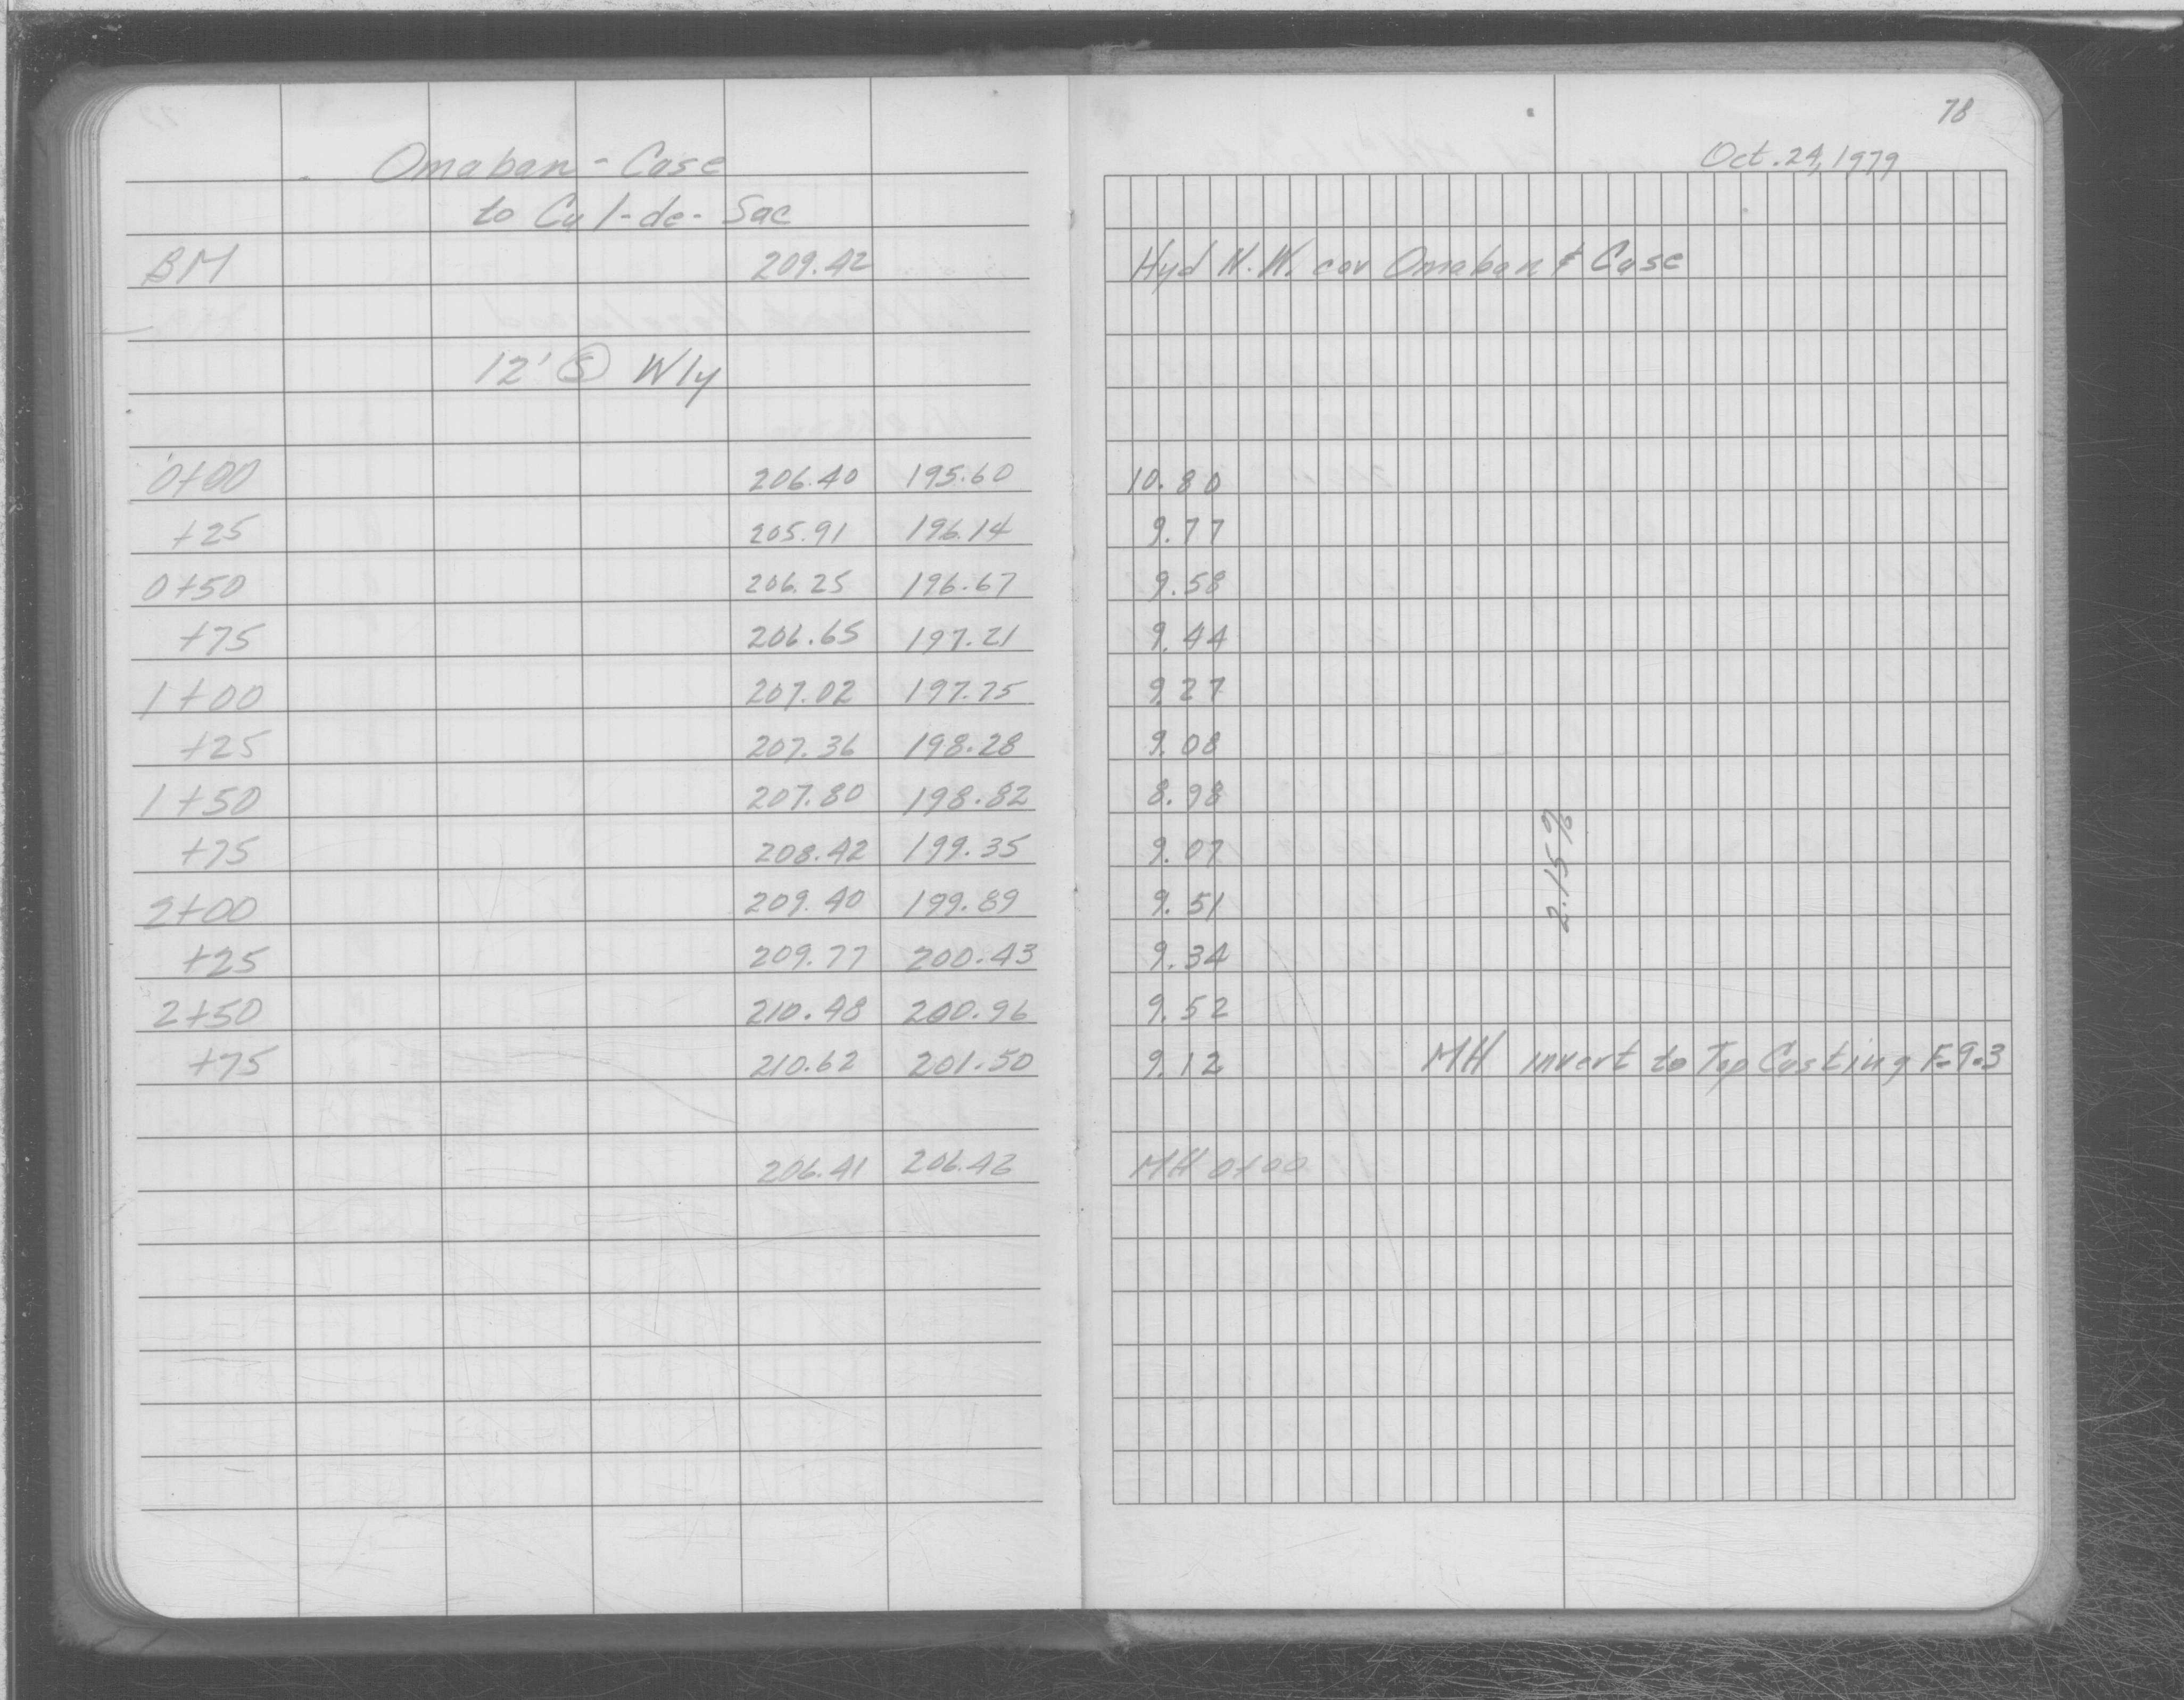 78
Oct. 24, 1979
Omaban - Case
to Cul-de-Sac
BM 209.42 Hyd N.W. cor Omaban & Case
12' Ⓢ Wly
0+00 206.40 195.60 10.80
+25 205.91 196.14 9.77
0+50 206.25 196.67 9.58
+75 206.65 197.21 9.44
1+00 207.02 197.75 9.27
+25 207.36 198.28 9.08
1+50 207.80 198.82 8.98
+75 208.42 199.35 9.07
2.15%
2+00 209.40 199.89 9.51
+25 209.77 200.43 9.34
2+50 210.48 200.96 9.52
+75 210.62 201.50 9.12 MH invert to Top Casting F-9.3
206.41 206.43 MH 0+00